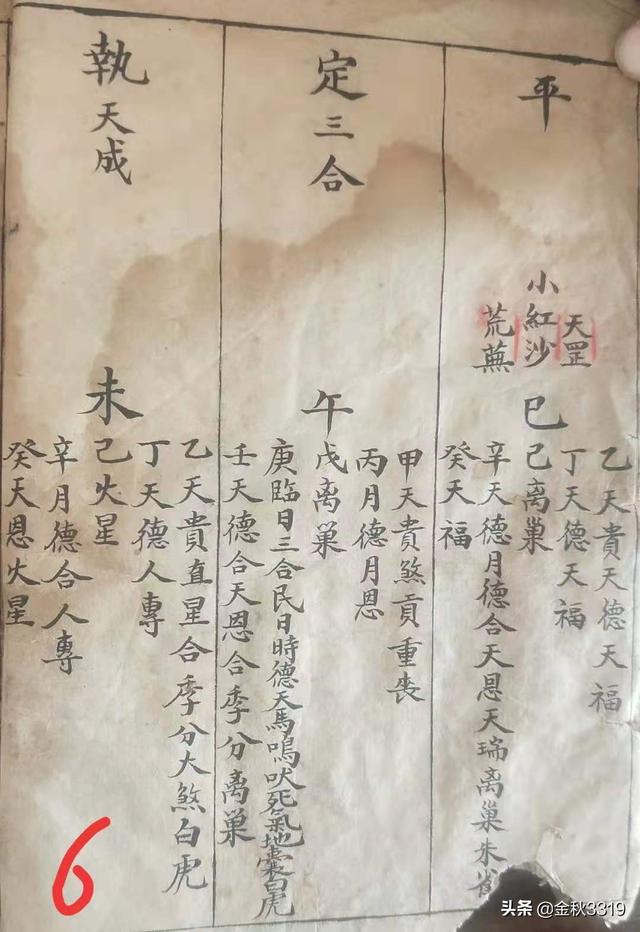 平
天罡
小紅沙
荒蕪
巳
乙天貴天德天福
丁天德天福
己离巢
辛天德月德合天恩天瑞离巢朱雀
癸天福
定三合
午
甲天貴煞貢重喪
丙月德月恩
戊离巢
庚臨日三合民日時德天馬鳴吠死氣地囊白虎
壬天德合天恩合季分离巢
執天成
未
乙天貴直星合季分大煞白虎
丁天德人專
己火星
辛月德合人專
癸天恩火星
6
头条 @金秋3319